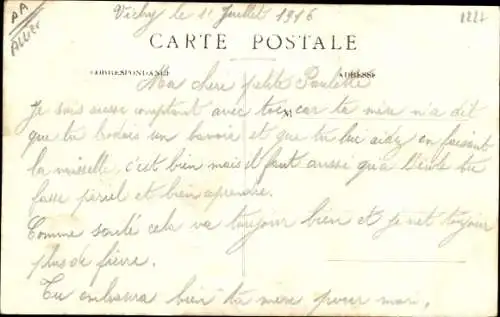 AA
ALLIER
Vichy le 1 Juillet 1916
1227
CARTE POSTALE
CORRESPONDANCE
ADRESSE
Ma chere petite Paulette
Je suis aussi comptant avec toi car ta mère m'a dit
que tu brodais un bavoir et que tu lui aidez en faisant
la vaisselle, c'et bien mais il faut aussi qu'a l'école tu
fasse pareil et bien aprendre.
Comme santé cela va toujour bien et je n'et toujour
plus de fievre.
Tu enbrassera bien ta mère pour moi.